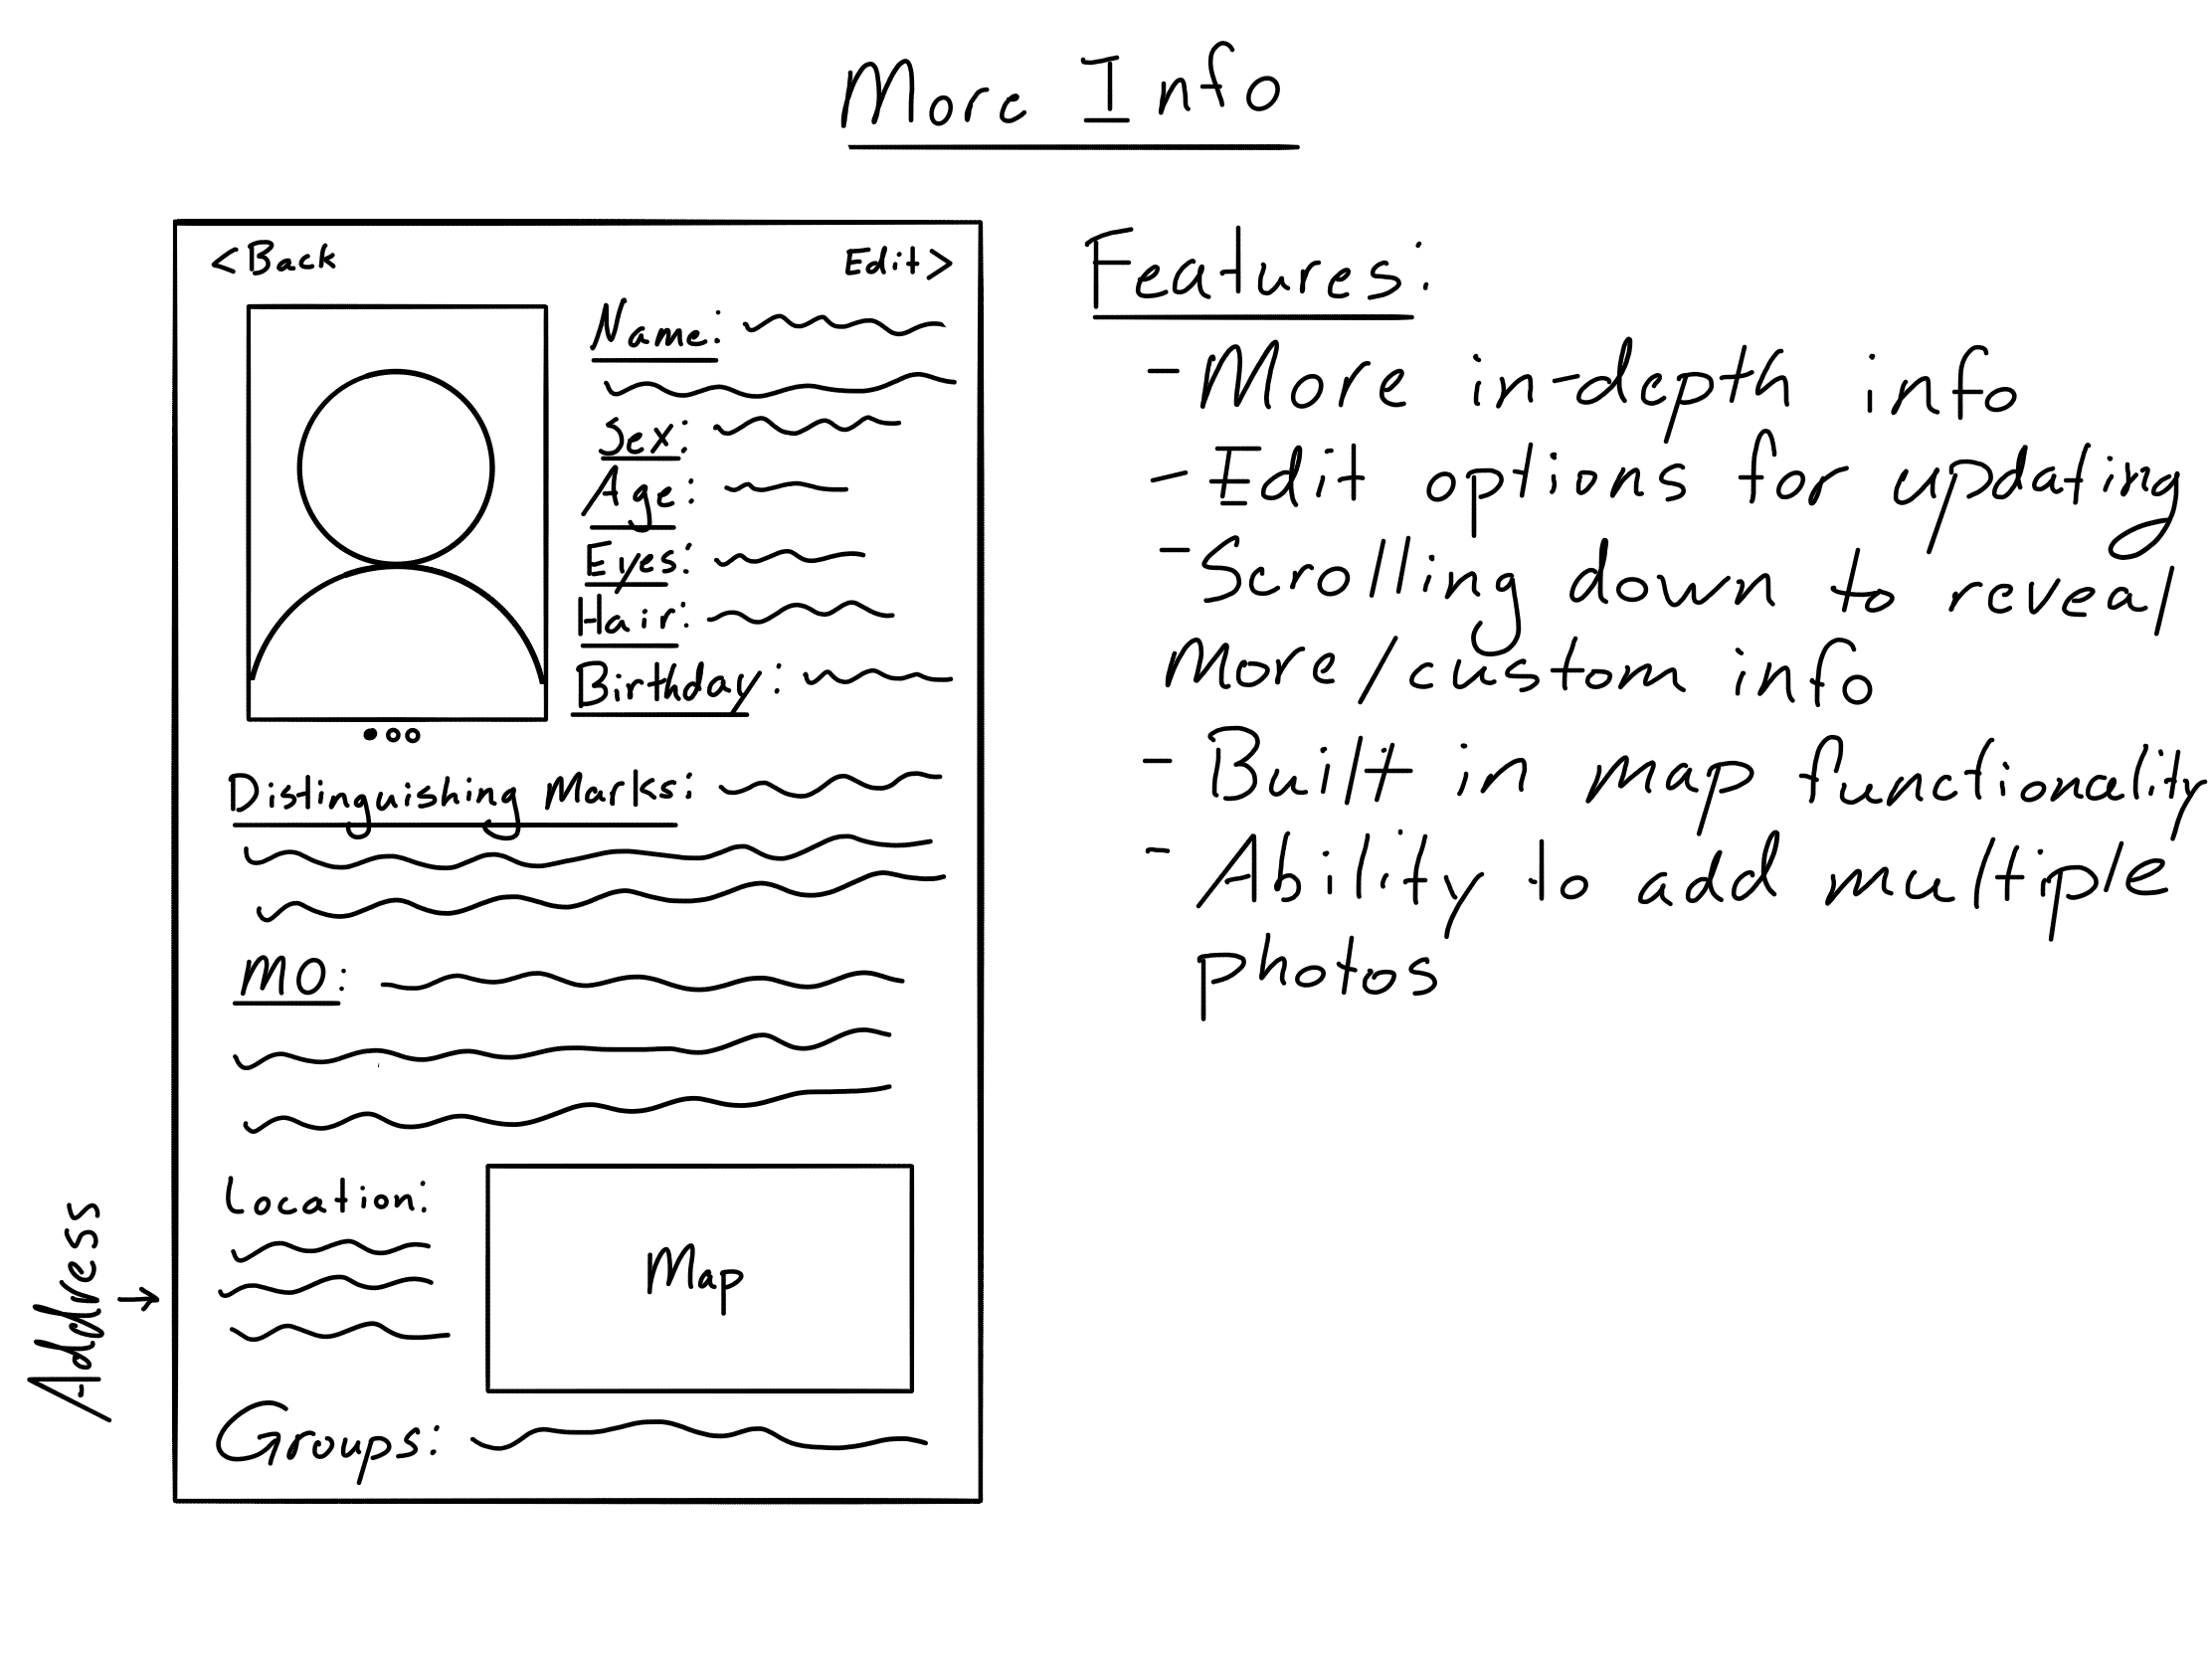 More Info
<Back
Edit>
Name:
Sex:
Age:
Eyes:
Hair:
Birthday:
Distinguishing Marks:
MO:
Location:
Map
Address
Groups:
Features:
- More in-depth info
- Edit options for updating
- Scrolling down to reveal
More/custom info
- Built in map functionality
- Ability to add multiple
photos